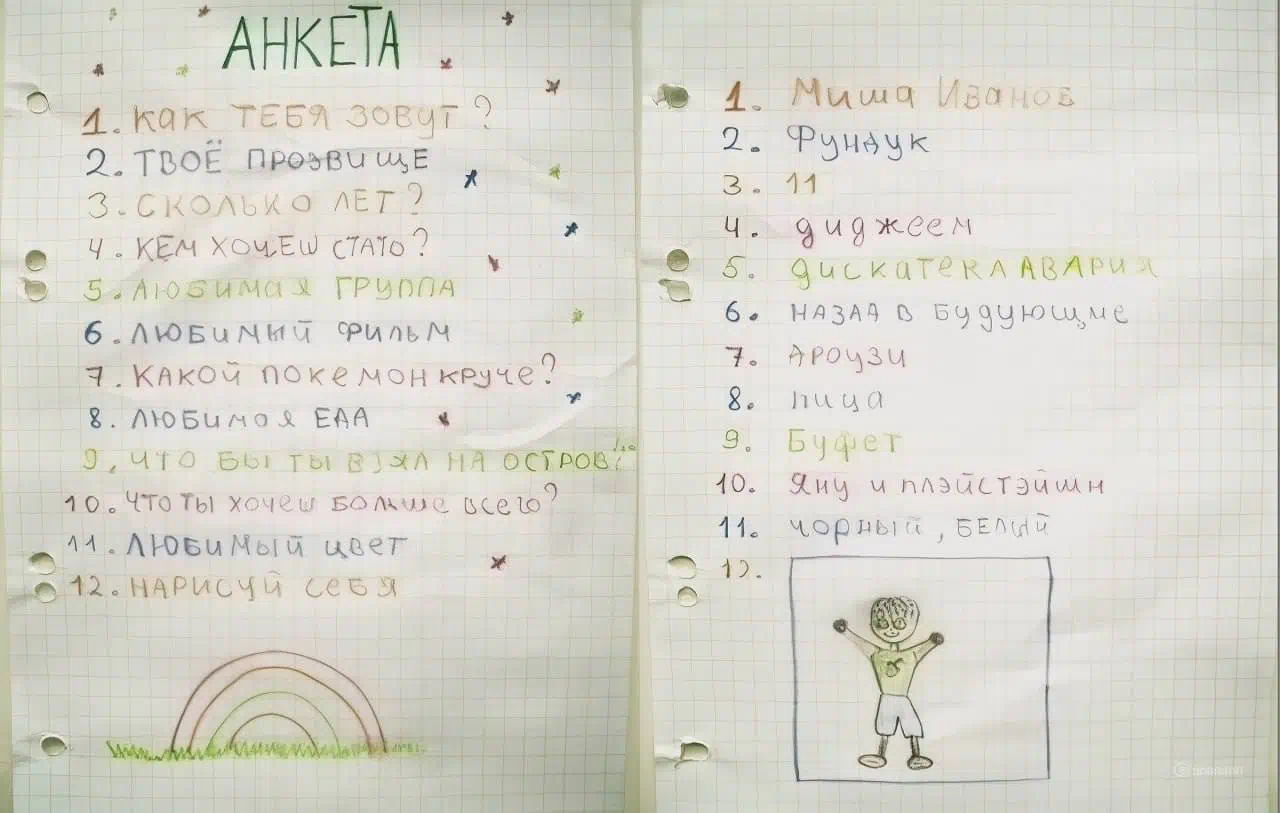 АНКЕТА
1. КАК ТЕБЯ ЗОВУТ?
2. ТВОЁ ПРОЗВИЩЕ
3. СКОЛЬКО ЛЕТ?
4. КЕМ ХОЧЕШ СТАТО?
5. ЛЮБИМАЯ ГРУППА
6. ЛЮБИМЫЙ ФИЛЬМ
7. КАКОЙ ПОКЕМОН КРУЧЕ?
8. ЛЮБИМАЯ ЕДА
9. ЧТО БЫ ТЫ ВЗЯЛ НА ОСТРОВ?
10. ЧТО ТЫ ХОЧЕШ БОЛЬШЕ ВСЕГО?
11. ЛЮБИМЫЙ ЦВЕТ
12. НАРИСУЙ СЕБЯ
1. Миша Иванов
2. Фундук
3. 11
4. диджеем
5. дискатека АВАРИЯ
6. НАЗАД В БУДУЮЩИЕ
7. АРОУЗИ
8. пица
9. Буфет
10. Яну и плэйстэйшн
11. чорный, БЕЛЫЙ
12.